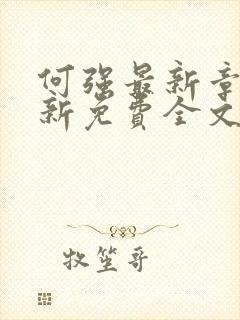 何强最新章
新免費全文
牧笙哥